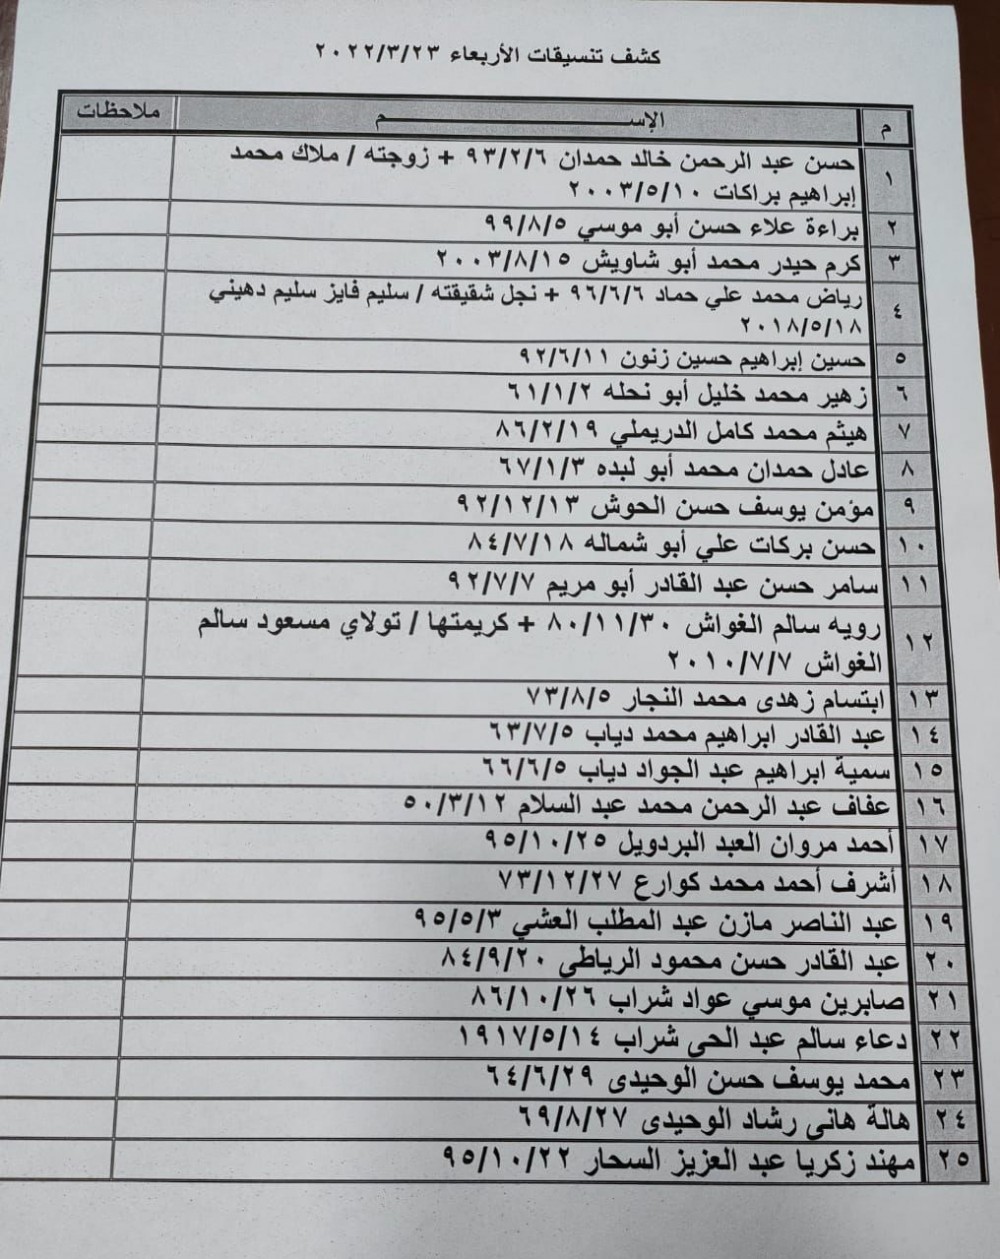 كشف تنسيقات الأربعاء ٢٠٢٢/٣/٢٣
م الإســـــــم ملاحظات
١ حسن عبد الرحمن خالد حمدان ٩٣/٢/٦ + زوجته / ملاك محمد
إبراهيم براكات ٢٠٠٣/٥/١٠
٢ براءة علاء حسن أبو موسي ٩٩/٨/٥
٣ كرم حيدر محمد أبو شاويش ٢٠٠٣/٨/١٥
٤ رياض محمد علي حماد ٩٦/٦/٦ + نجل شقيقته / سليم فايز سليم دهيني
٢٠١٨/٥/١٨
٥ حسين إبراهيم حسين زنون ٩٢/٦/١١
٦ زهير محمد خليل أبو نحله ٦١/١/٢
٧ هيثم محمد كامل الدريملي ٨٦/٢/١٩
٨ عادل حمدان محمد أبو لبده ٦٧/١/٣
٩ مؤمن يوسف حسن الحوش ٩٢/١٢/١٣
١٠ حسن بركات علي أبو شماله ٨٤/٧/١٨
١١ سامر حسن عبد القادر أبو مريم ٩٢/٧/٧
١٢ رويه سالم الغواش ٨٠/١١/٣٠ + كريمتها / تولاي مسعود سالم
الغواش ٢٠١٠/٧/٧
١٣ ابتسام زهدى محمد النجار ٧٣/٨/٥
١٤ عبد القادر ابراهيم محمد دياب ٦٣/٧/٥
١٥ سمية ابراهيم عبد الجواد دياب ٦٦/٦/٥
١٦ عفاف عبد الرحمن محمد عبد السلام ٥٠/٣/١٢
١٧ أحمد مروان العبد البردويل ٩٥/١٠/٢٥
١٨ أشرف أحمد محمد كوارع ٧٣/١٢/٢٧
١٩ عبد الناصر مازن عبد المطلب العشي ٩٥/٥/٣
٢٠ عبد القادر حسن محمود الرياطي ٨٤/٩/٢٠
٢١ صابرين موسي عواد شراب ٨٦/١٠/٢٦
٢٢ دعاء سالم عبد الحى شراب ١٩١٧/٥/١٤
٢٣ محمد يوسف حسن الوحيدى ٦٤/٦/٢٩
٢٤ هالة هانى رشاد الوحيدى ٦٩/٨/٢٧
٢٥ مهند زكريا عبد العزيز السحار ٩٥/١٠/٢٢